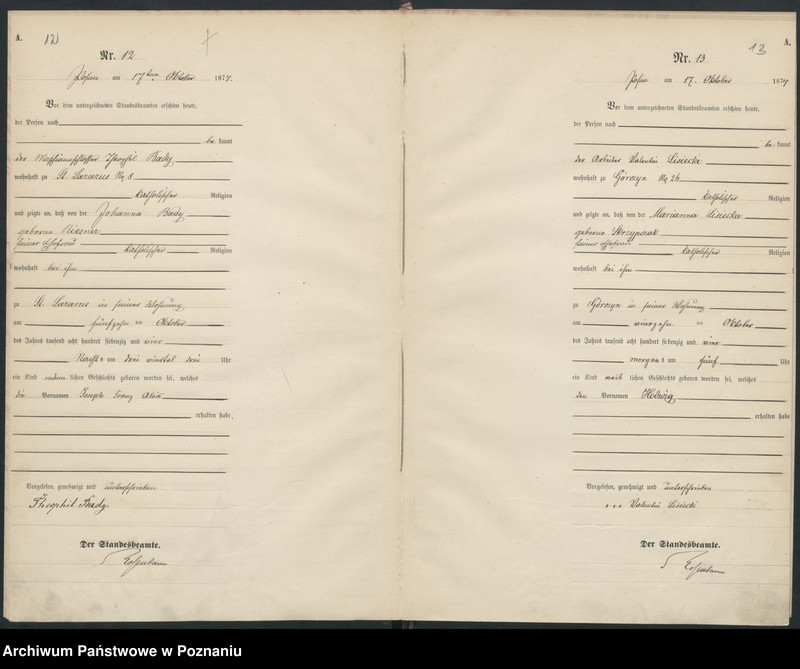 A.
12
Nr. 12
Posen am 17ten Oktober 1874.
Vor dem unterzeichneten Standesbeamten erschien heute,
der Person nach
be kannt
der Maschinenschlosser Theophil Bady
wohnhaft zu St. Lazarus No 8
katholischer Religion
und zeigte an, daß von der Johanna Bady
geborne
seiner Ehefrau
katholischer Religion
wohnhaft bei ihm
zu St. Lazarus in seiner Wohnung
am fünfzehn ten Oktober
des Jahres tausend acht hundert siebenzig und vier
Nachts um drei viertel drei Uhr
ein Kind männlichen Geschlechts geboren worden sei, welches
die Vornamen Joseph Franz
erhalten habe.
Vorgelesen, genehmigt und unterschrieben
Theophil Bady.
Der Standesbeamte.
A.
13
Nr. 13
Posen am 17. Oktober 1874
Vor dem unterzeichneten Standesbeamten erschien heute,
der Person nach
be kannt
der Arbeiter Valentin Lisiecki
wohnhaft zu Górczyn No 26
katholischer Religion
und zeigte an, daß von der Marianna Lisiecka
geborne Skrzypczak
seiner Ehefrau
katholischer Religion
wohnhaft bei ihm
zu Górczyn in seiner Wohnung
am vierzehn ten Oktober
des Jahres tausend acht hundert siebenzig und vier
morgens um fünf Uhr
ein Kind weiblichen Geschlechts geboren worden sei, welches
den Vornamen Hedwig
erhalten habe.
Vorgelesen, genehmigt und unterschrieben
+++ Valentin Lisiecki
Der Standesbeamte.
Archiwum Państwowe w Poznaniu